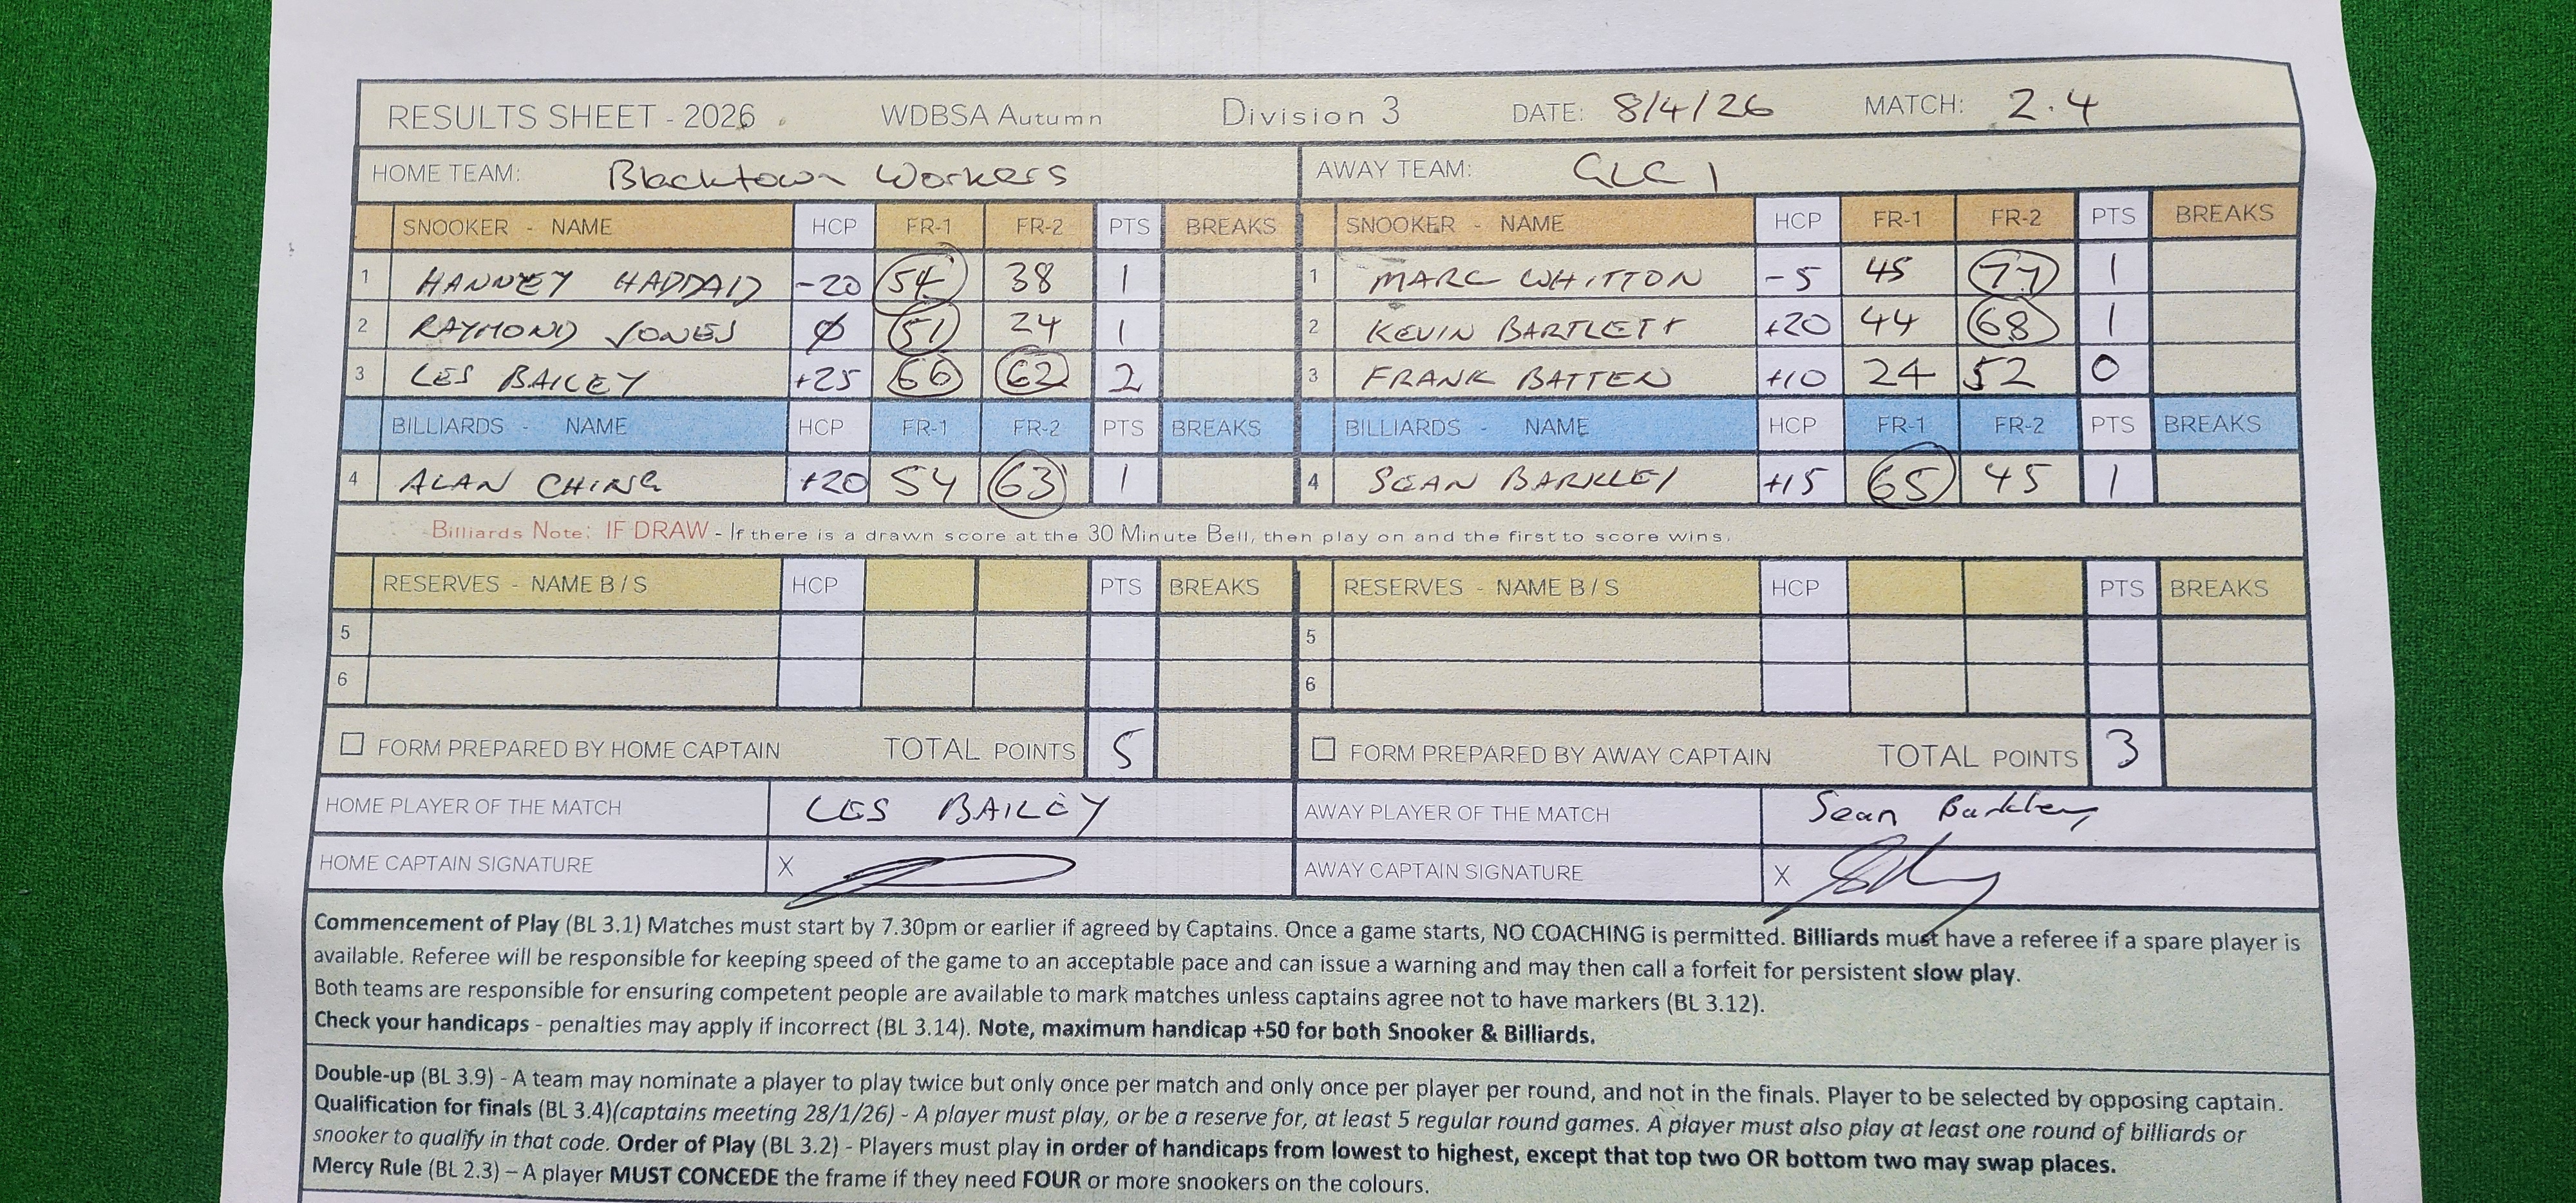 RESULTS SHEET - 2026 WDBSA Autumn Division 3 DATE: 8/4/26 MATCH: 2.4
HOME TEAM: Blacktown Workers AWAY TEAM: GLC 1
SNOOKER - NAME HCP FR-1 FR-2 PTS BREAKS SNOOKER - NAME HCP FR-1 FR-2 PTS BREAKS
1 HANNEY HADDAD -20 54 38 1 1 MARC WHITTON -5 45 77 1
2 RAYMOND JONES 0 51 24 1 2 KEVIN BARTLETT +20 44 68 1
3 LES BAILEY +25 66 62 2 3 FRANK BATTEN +10 24 52 0
BILLIARDS - NAME HCP FR-1 FR-2 PTS BREAKS BILLIARDS - NAME HCP FR-1 FR-2 PTS BREAKS
4 ALAN CHING +20 54 63 1 4 SEAN BARKLEY +15 65 45 1
Billiards Note: IF DRAW - If there is a drawn score at the 30 Minute Bell, then play on and the first to score wins.
RESERVES - NAME B / S HCP PTS BREAKS RESERVES - NAME B / S HCP PTS BREAKS
5 5
6 6
FORM PREPARED BY HOME CAPTAIN TOTAL POINTS 5 FORM PREPARED BY AWAY CAPTAIN TOTAL POINTS 3
HOME PLAYER OF THE MATCH LES BAILEY AWAY PLAYER OF THE MATCH Sean Barkley
HOME CAPTAIN SIGNATURE X AWAY CAPTAIN SIGNATURE X
Commencement of Play (BL 3.1) Matches must start by 7.30pm or earlier if agreed by Captains. Once a game starts, NO COACHING is permitted. Billiards must have a referee if a spare player is
available. Referee will be responsible for keeping speed of the game to an acceptable pace and can issue a warning and may then call a forfeit for persistent slow play.
Both teams are responsible for ensuring competent people are available to mark matches unless captains agree not to have markers (BL 3.12).
Check your handicaps - penalties may apply if incorrect (BL 3.14). Note, maximum handicap +50 for both Snooker & Billiards.
Double-up (BL 3.9) - A team may nominate a player to play twice but only once per match and only once per player per round, and not in the finals. Player to be selected by opposing captain.
Qualification for finals (BL 3.4)(captains meeting 28/1/26) - A player must play, or be a reserve for, at least 5 regular round games. A player must also play at least one round of billiards or
snooker to qualify in that code. Order of Play (BL 3.2) - Players must play in order of handicaps from lowest to highest, except that top two OR bottom two may swap places.
Mercy Rule (BL 2.3) – A player MUST CONCEDE the frame if they need FOUR or more snookers on the colours.